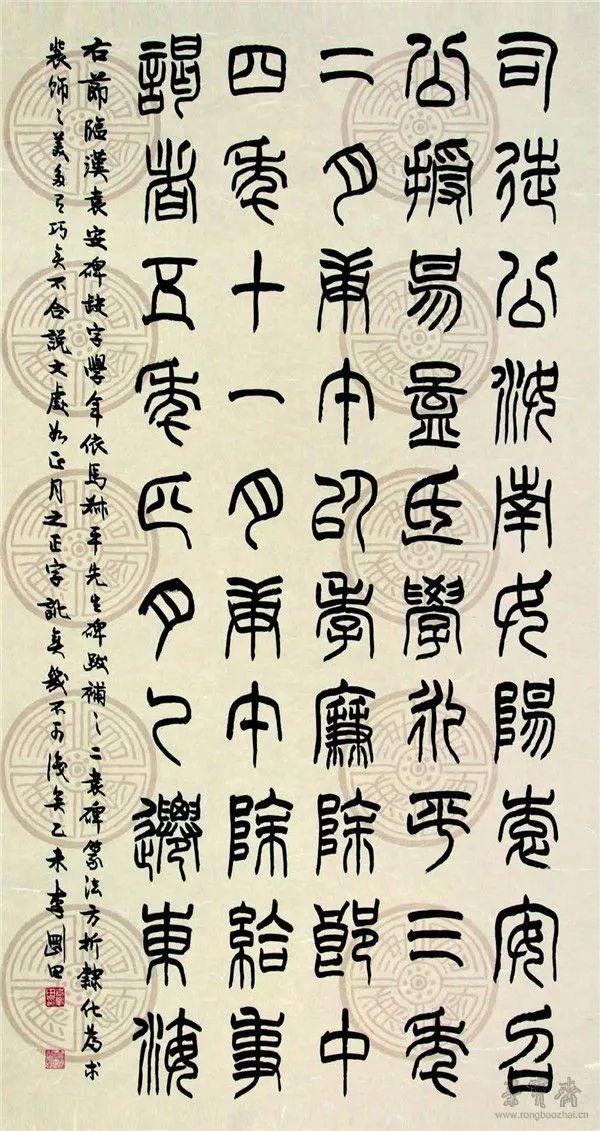 司徒公汝南女陽袁安召
公授易孟氏學永平三年
二月庚午以孝廉除郎中
四年十一月庚午除給事
謁者五年正月乙遷東海
右節臨漢袁安碑缺字學年依馬叔平先生碑跋補之二袁碑篆法方折隸化為求
裝飾之美多巧矣不合說文處如正月之正字訛矣不可矣乙未李剛田
榮寶齋
www.rongbaozhai.cn